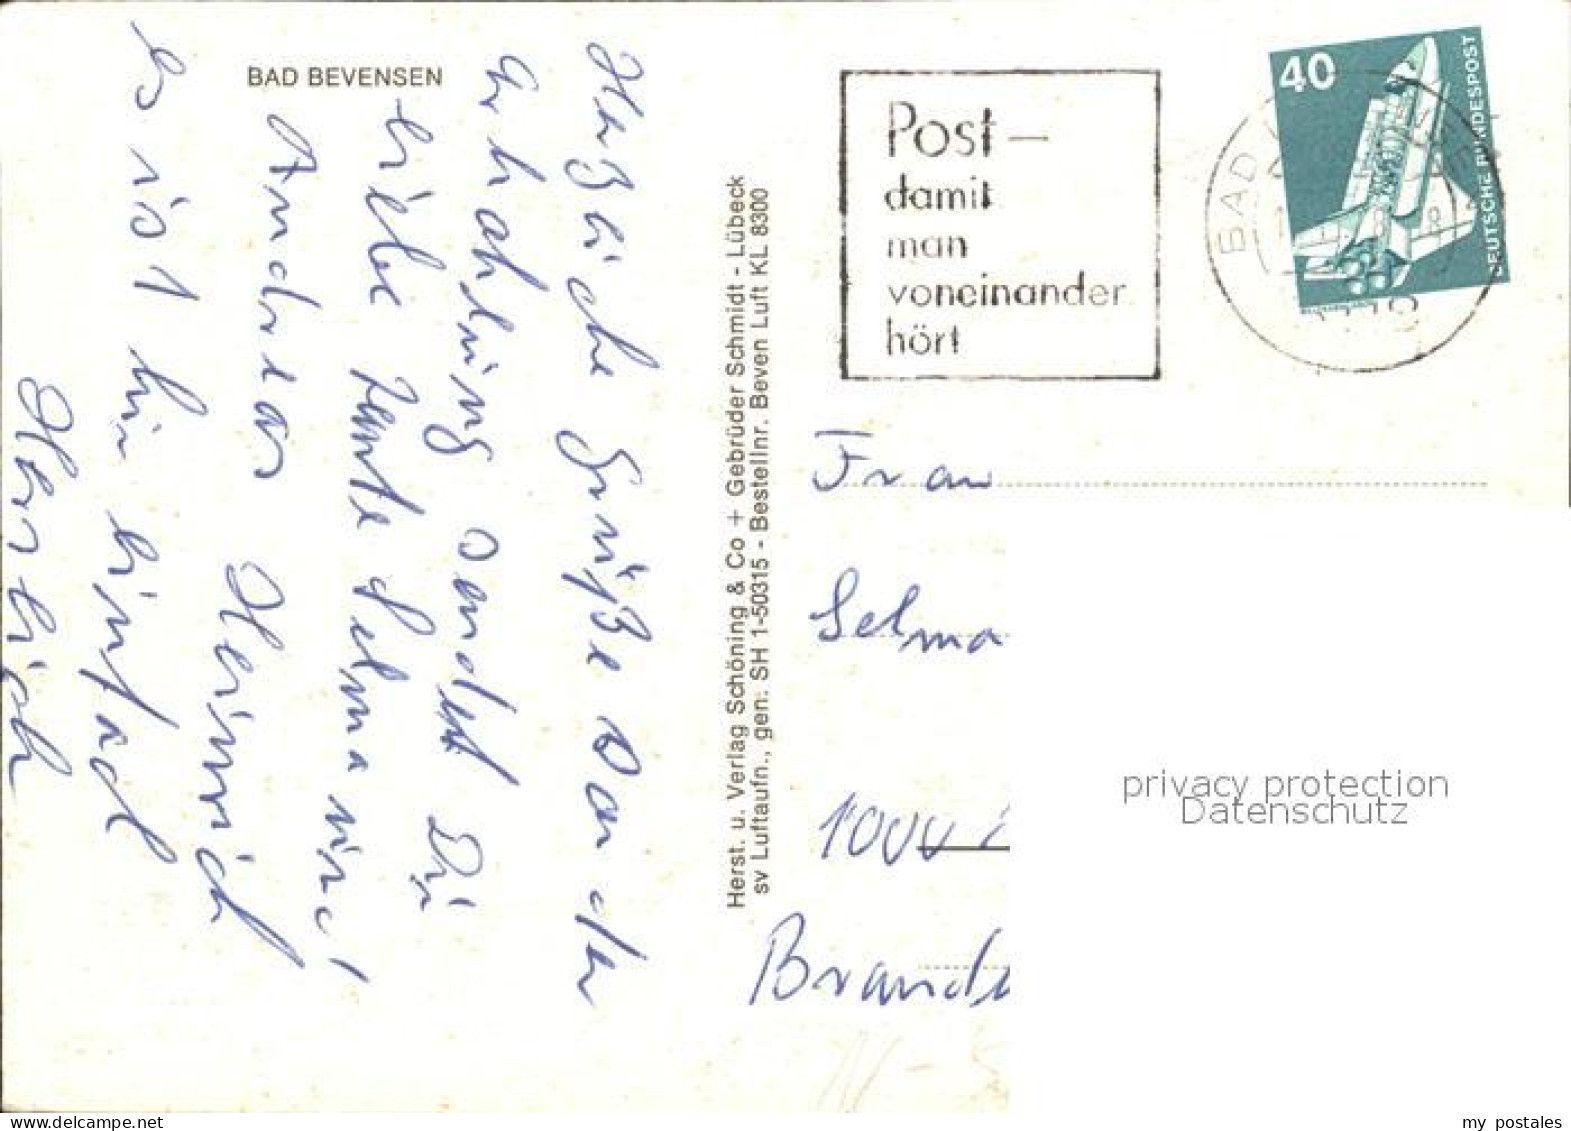 BAD BEVENSEN
Herzliche Grüße von der
Erhohlung sendet Dir
liebe Tante Selma Dir!
Andreas Heinrich
Es ist hir einfach
Herrlich
Herst. u. Verlag Schöning & Co + Gebrüder Schmidt - Lübeck
sv Luftaufn., gen: SH 1-50315 - Bestellnr. Beven Luft KL 8300
Post –
damit
man
voneinander
hört
BAD
40
DEUTSCHE BUNDESPOST
Frau
Selma
1000
Brande
privacy protection
Datenschutz
delcampe.net
my_postales